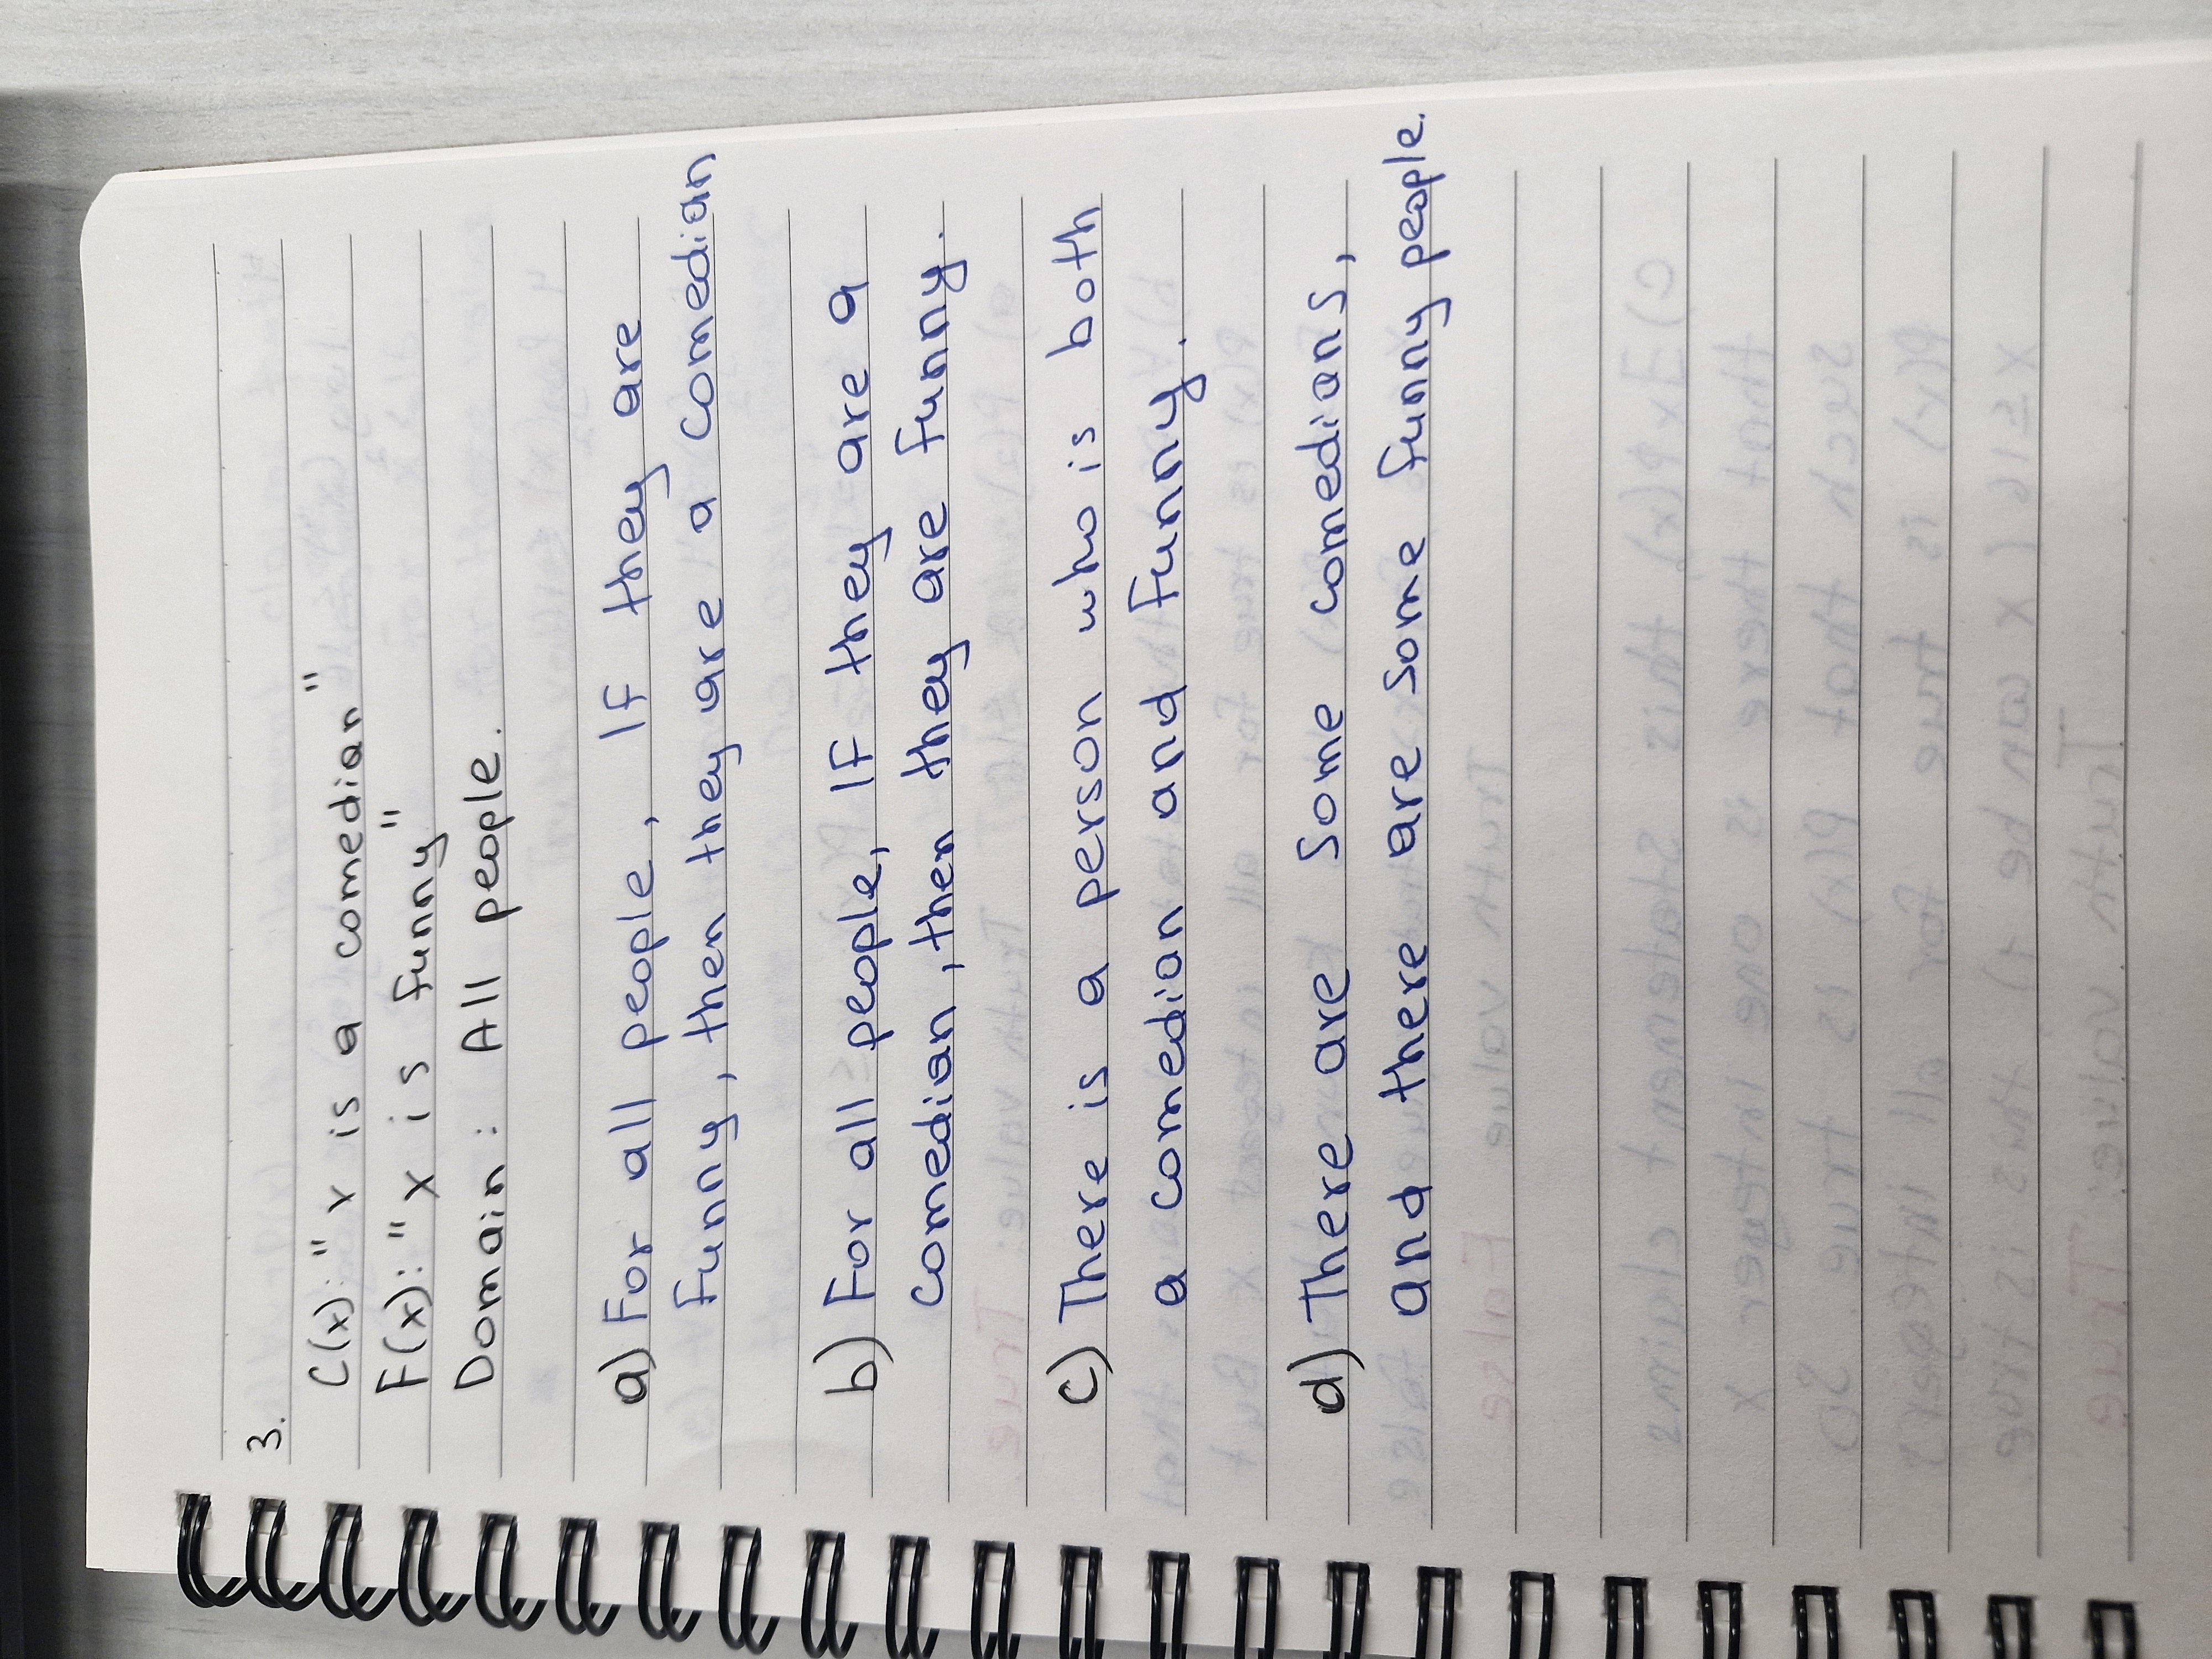 3.
C(x): "x is a comedian"
F(x): "x is funny"
Domain: All people.
a) For all people, If they are
funny, then they are a comedian
b) For all people, IF they are a
comedian, then they are funny.
c) There is a person who is both
a comedian and funny.
d) There are some comedians,
and there are some funny people.